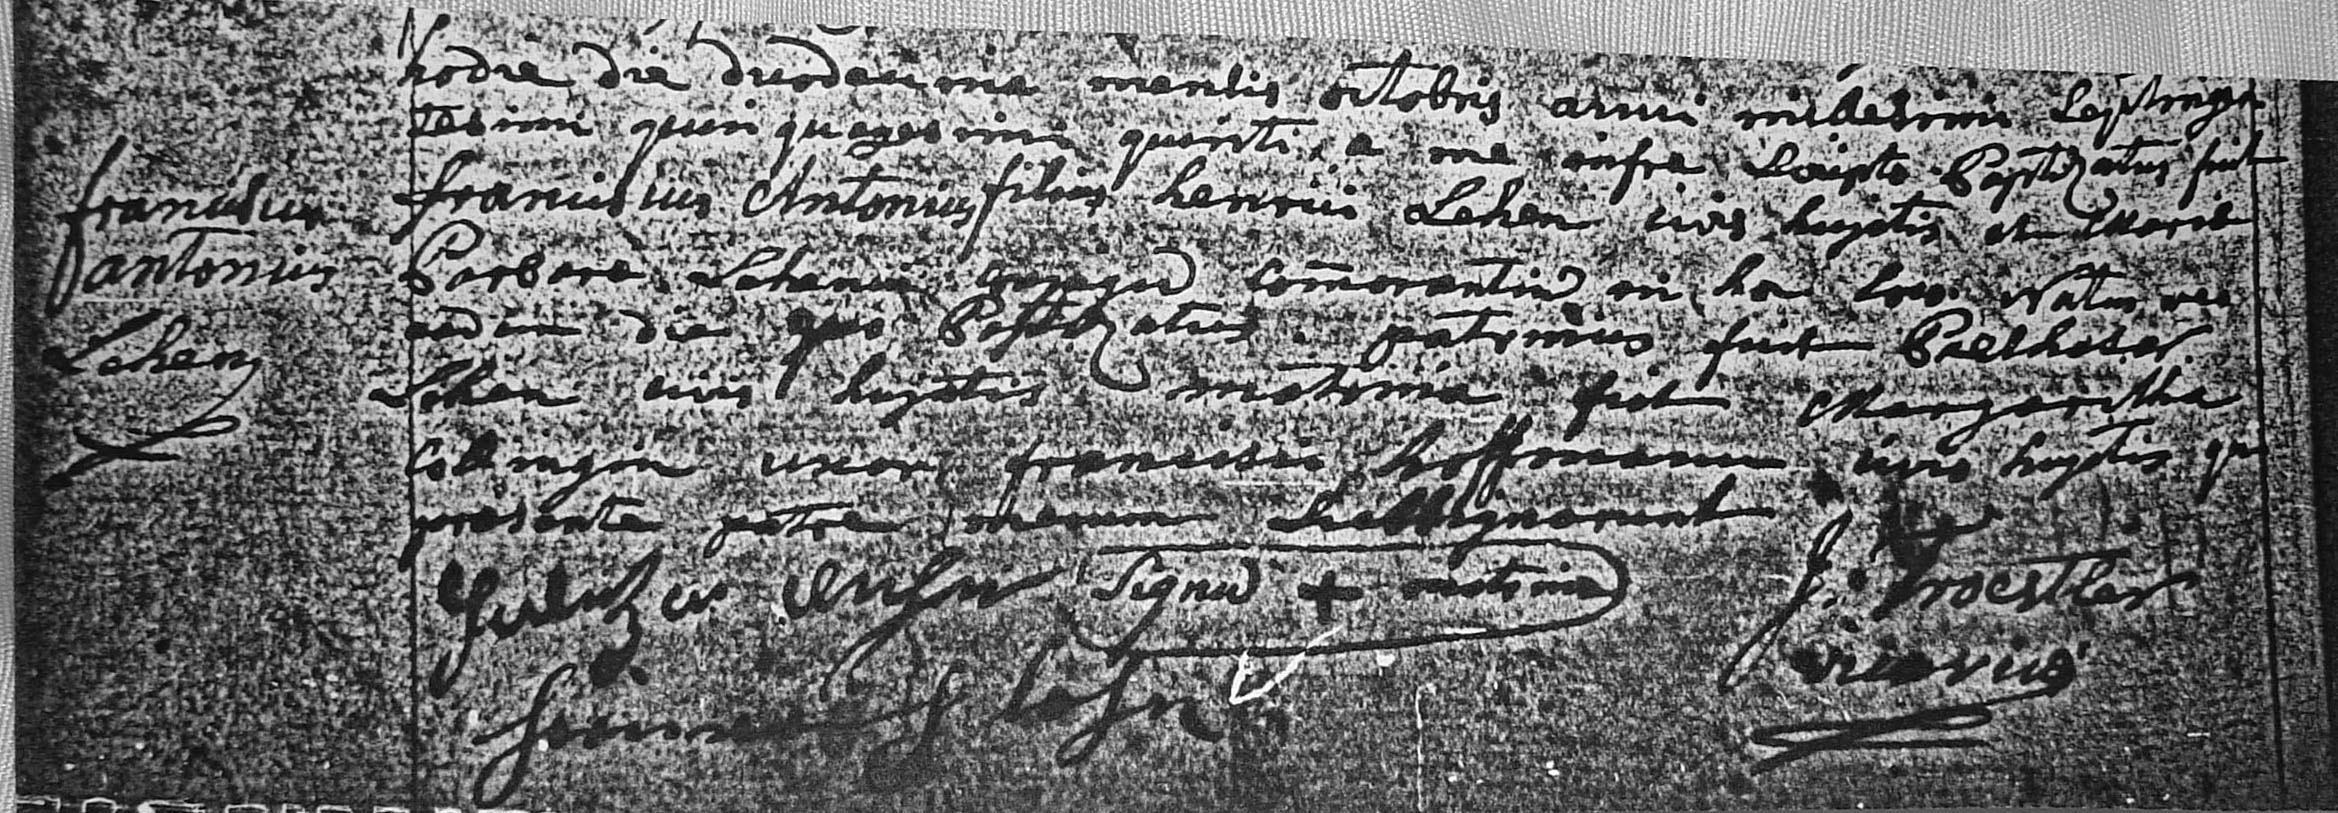 francisus
antonius
Lehen
hodie die duodecima mensis octobris anni millesimi septinga
tesimi quinquagesimi quinti, a me infra scripto Baptizatus fuit
francisius Antonius filius henrici Lehen civis hujatis et Marie
Barbare Lehenin conjugū com̄orantiū in hoc loco. Natus vero
eadem die qua Baptizatus. patrinus fuit Balthasar
Lehen civis hujatis matrina fuit Margaritha
uxor francisci hoffmann civis hujatis qui
presente patre mecum
Signū + matrina
J. Troestler
vicarius